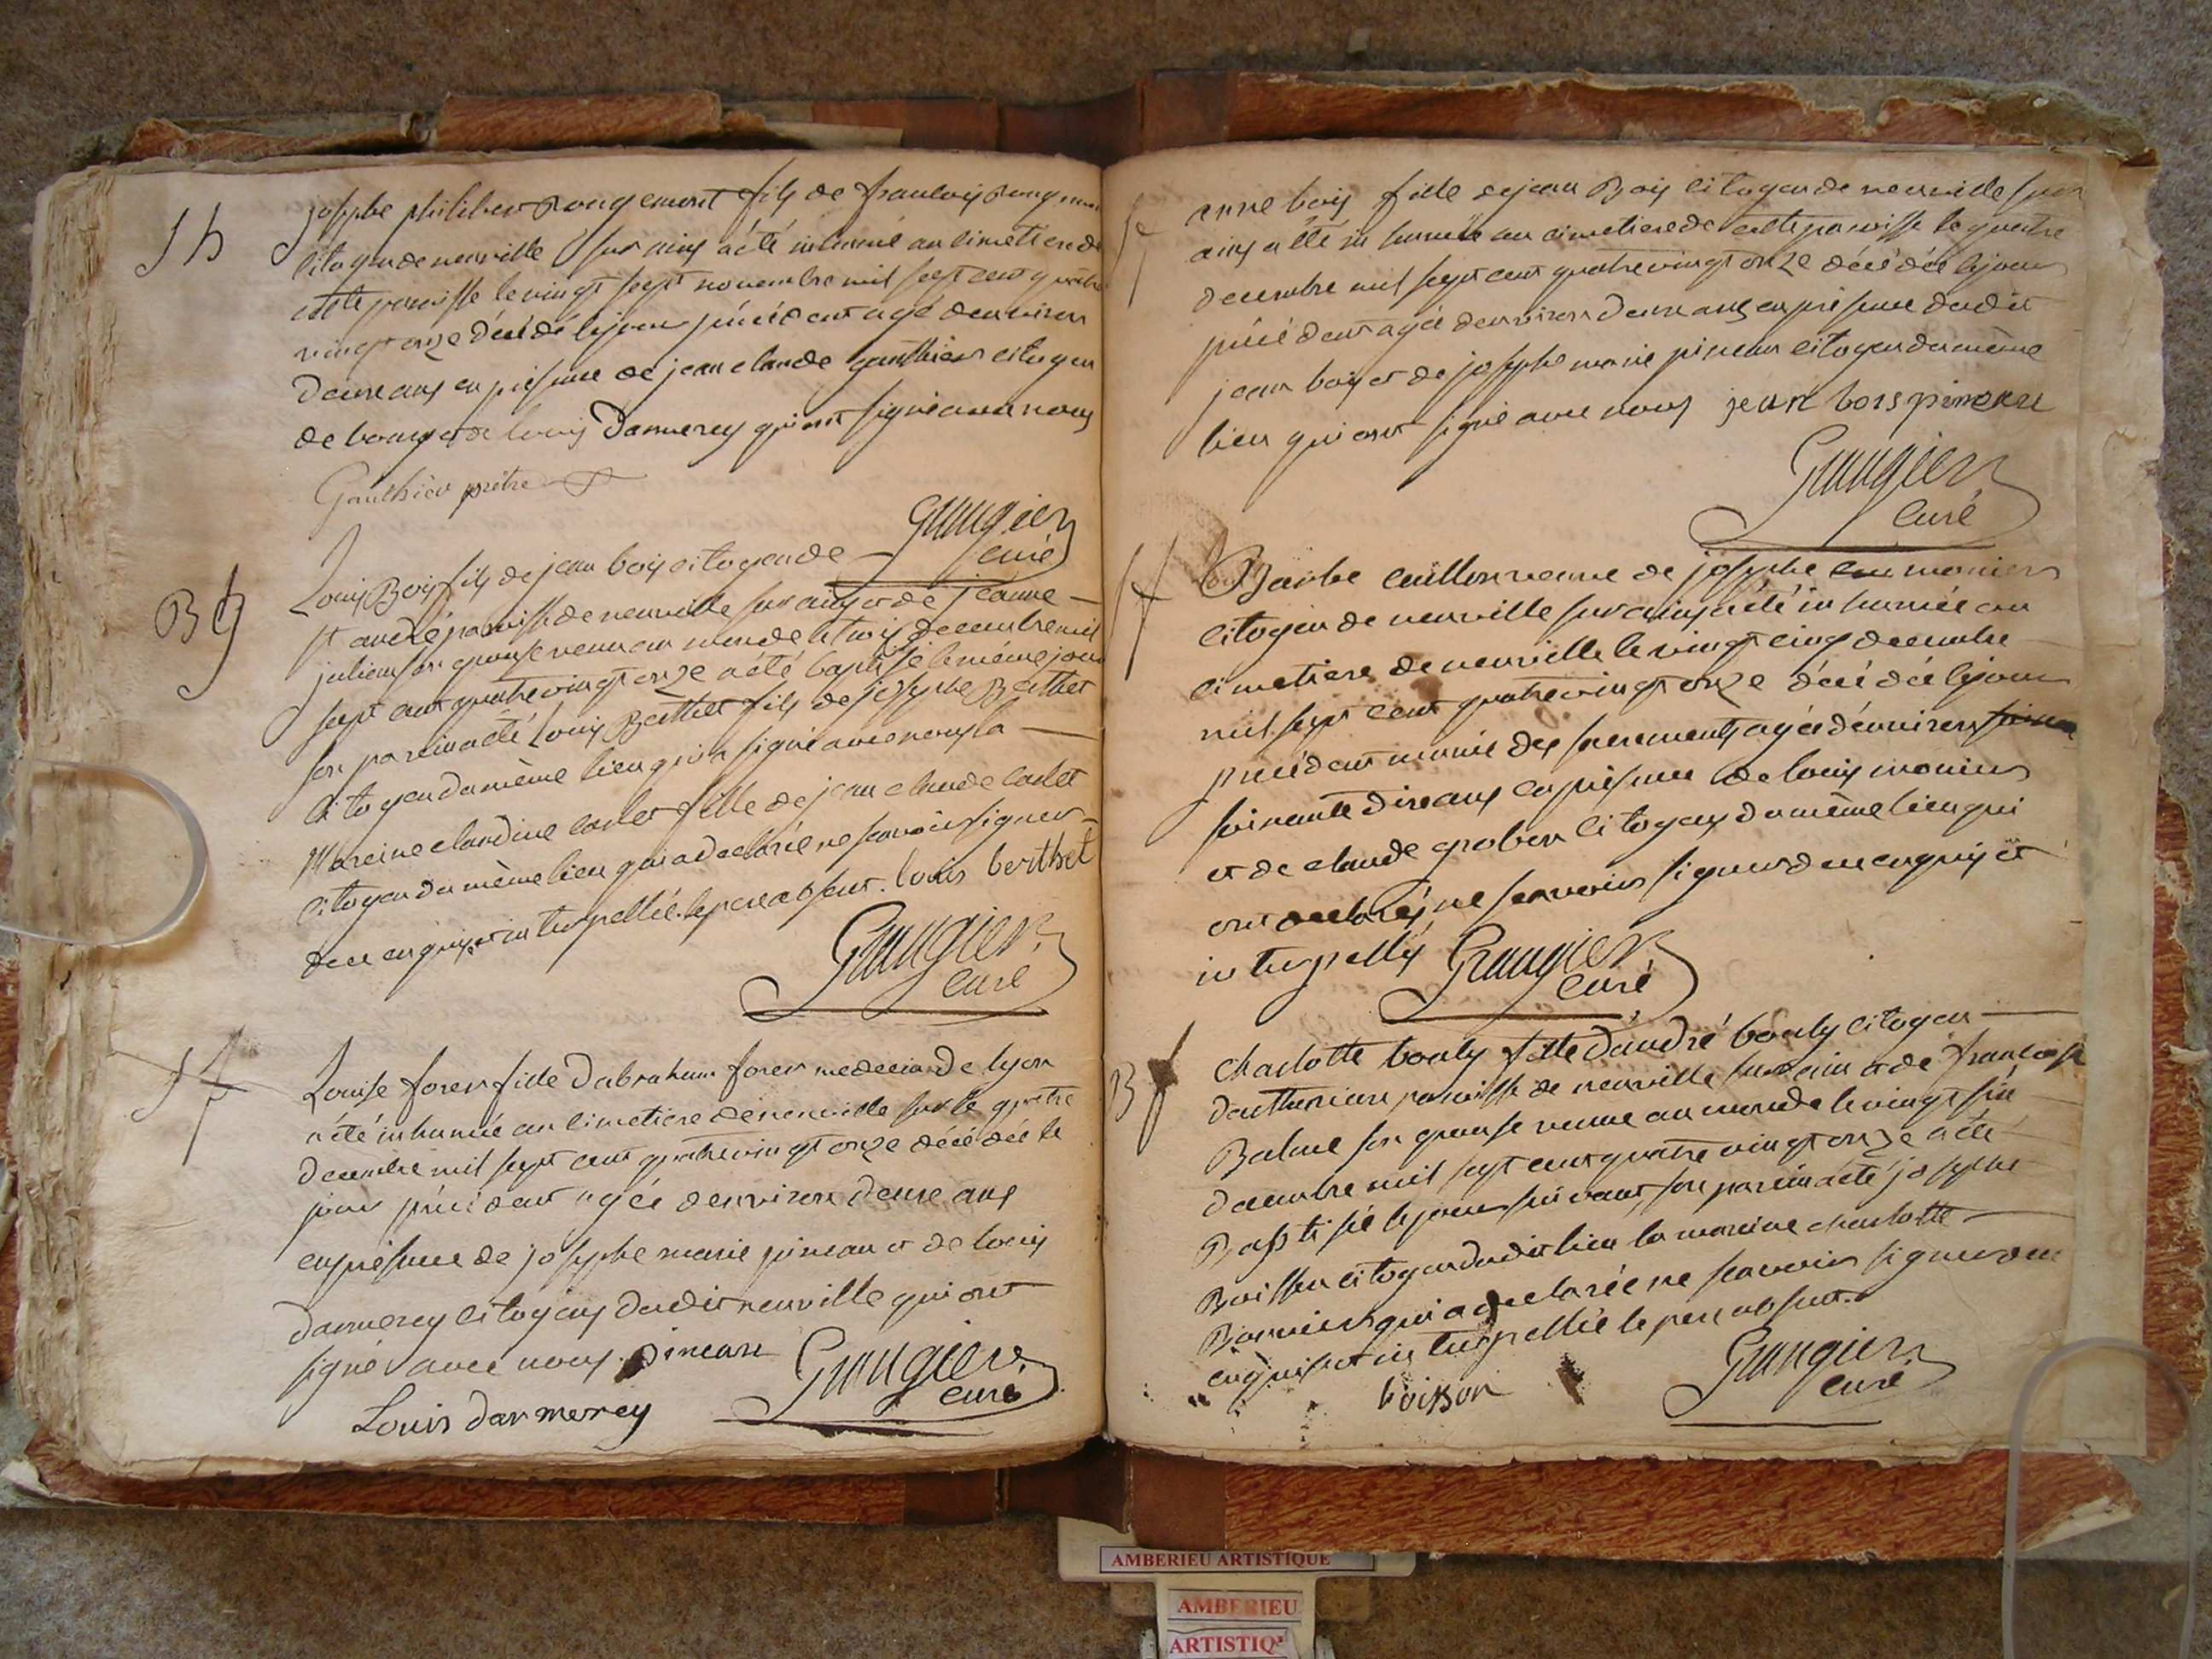 josephe philibert Rougemont fils de francois Rougemont
citoyen de neuville sur ains a été inhumé au cimetiere de
cette paroisse le vingt sept novembre mil sept cent quatre
vingt onze décédé le jour précédent agé denviron
deux ans en présence de jean claude gauthier citoyen
de bourg et de louis Darmerey qui ont signé avec nous
Gauthier prêtre
Graugier
curé
Louis Bois fils de jean bois citoyen de
st andré paroisse de neuville sur ains et de jeanne
julien son epouse venu au monde le trois decembre mil
sept cent quatre vingt onze a été baptisé le même jour
son parein a été Louis Berthet fils de josephe Berthet
citoyen du même lieu qui a signé avec nous la
Mareine claudine carlet fille de jean claude carlet
citoyen du même lieu qui a declarée ne scavoir signer
de ce enquise et interpellée. le pere absent. louis berthet
Graugier
curé
Louise forer fille dabraham forer medecin de lyon
a été inhumée au cimetiere de neuville sur le quatre
decembre mil sept cent quatre vingt onze décédée le
jour précédent agée denviron deux ans
en présence de josephe marie pineau et de louis
darmerey citoyens dudit neuville qui ont
signé avec nous. pineau
Graugier
curé
Louis darmerey
anne bois fille de jean Bois citoyen de neuville sur
ains a été inhumée au cimetiere de cette paroisse le quatre
decembre mil sept cent quatre vingt onze décédée le jour
précédent agée denviron deux ans en présence dudit
jean bois et de josephe marie pineau citoyen du même
lieu qui ont signé avec nous jean bois pineau
Graugier
curé
Barbe cuillon veuve de josephe monier
citoyen de neuville sur ains a été inhumée au
cimetiere de neuville le vingt cinq decembre
mil sept cent quatre vingt onze décédée le jour
précédent munie des sacrements agée d'environ
soixante dix ans en présence de louis monier
et de claude grobon citoyens du même lieu qui
ont declarés ne scavoir signer de ce enquis et
interpellés
Graugier
curé
charlotte bouly fille dandré bouly citoyen
dauthurieu paroisse de neuville sur ain et de francoise
Balme son epouse venue au monde le vingt six
decembre mil sept cent quatre vingt onze a été
Baptisée le jour suivant, son parein a été josephe
Boisson citoyen dudit lieu la mareine charlotte
qui a declarée ne scavoir signer de ce
enquise et interpellée le pere absent.
boisson
Graugier
curé
AMBERIEU ARTISTIQUE
AMBERIEU
ARTISTIQ